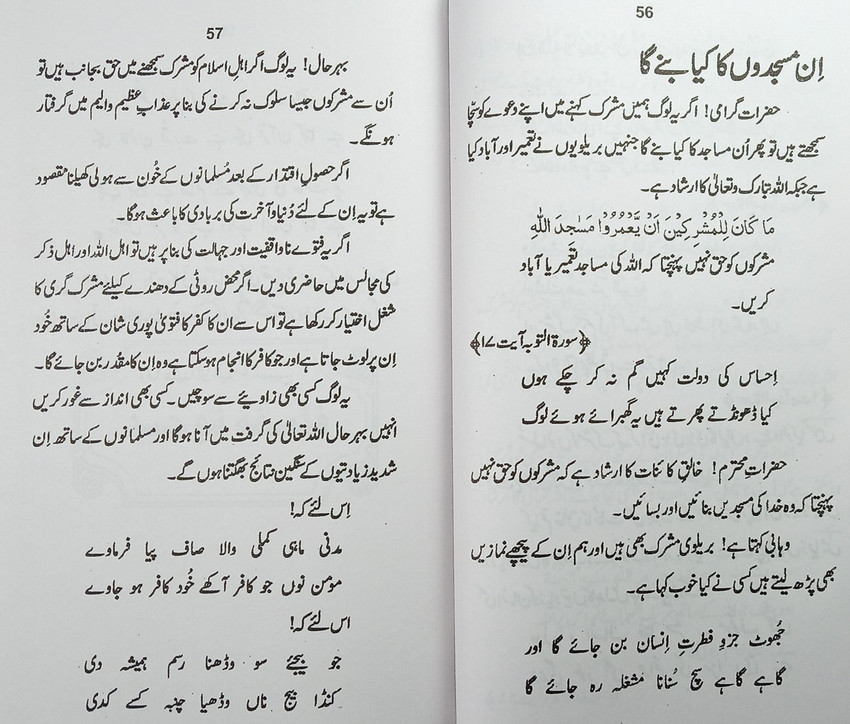 56
اِن مسجدوں کا کیا بنے گا
حضرات گرامی! اگر یہ لوگ ہمیں مشرک کہنے میں اپنے دعوے کو سچّا
سمجھتے ہیں تو پھر اُن مساجد کا کیا بنے گا جنہیں بریلویوں نے تعمیر اور آباد کیا
ہے جبکہ اللہ تبارک وتعالیٰ کا ارشاد ہے۔
مَا كَانَ لِلْمُشْرِكِيْنَ اَنْ يَّعْمُرُوْا مَسٰجِدَ اللّٰهِ
مشرکوں کو حق نہیں پہنچتا کہ اللہ کی مساجد تعمیر یا آباد
کریں۔
﴿سورة التوبہ آیت ۱۷﴾
اِحساس کی دولت کہیں گم نہ کر چکے ہوں
کیا ڈھونڈتے پھرتے ہیں یہ گھبرائے ہوئے لوگ
حضراتِ محترم! خالقِ کائنات کا ارشاد ہے کہ مشرکوں کو حق نہیں
پہنچتا کہ وہ خدا کی مسجدیں بنائیں اور بسائیں۔
وہابی کہتا ہے! بریلوی مشرک بھی ہیں اور ہم اِن کے پیچھے نمازیں
بھی پڑھ لیتے ہیں کسی نے کیا خوب کہا ہے۔
جُھوٹ جزوِ فطرتِ اِنسان بن جائے گا اور
گاہے گاہے سچ سُنانا مشغلہ رہ جائے گا
57
بہر حال! یہ لوگ اگر اہلِ اسلام کو مشرک سمجھنے میں حق بجانب ہیں تو
اُن سے مشرکوں جیسا سلوک نہ کرنے کی بنا پر عذابِ عظیم والیم میں گرفتار
ہونگے۔
اگر حصولِ اقتدار کے بعد مُسلمانوں کے خُون سے ہولی کھیلنا مقصود
ہے تو یہ اِن کے لئے دُنیا و آخرت کی بربادی کا باعث ہوگا۔
اگر یہ فتوے ناواقفیت اور جہالت کی بنا پر ہیں تو اہل اللہ اور اہل ذکر
کی مجالس میں حاضری دیں۔ اگر محض روٹی کے دھندے کیلئے مشرک گری کا
شغل اختیار کر رکھا ہے تو اس سے ان کا کفر کا فتویٰ پوری شان کے ساتھ خُود
اِن پر لوٹ جاتا ہے اور جو کافر کا انجام ہوسکتا ہے وہ اِن کا مقدر بن جائے گا۔
یہ لوگ کسی بھی زاویئے سے سوچیں۔ کسی بھی انداز سے غور کریں
انہیں بہر حال اللہ تعالیٰ کی گرفت میں آنا ہوگا اور مسلمانوں کے ساتھ اِن
شدید زیادتیوں کے سنگین نتائج بھگتنا ہوں گے۔
اِس لئے کہ!
مدنی ماہی کملی والا صاف پیا فرماوے
مؤمن نوں جو کافر آکھے خُود کافر ہو جاوے
اس لئے کہ!
جو بیجئے سو وڈھنا رسم ہمیشہ دی
کنڈا بیج ناں وڈھیا چنبہ کسے کدی